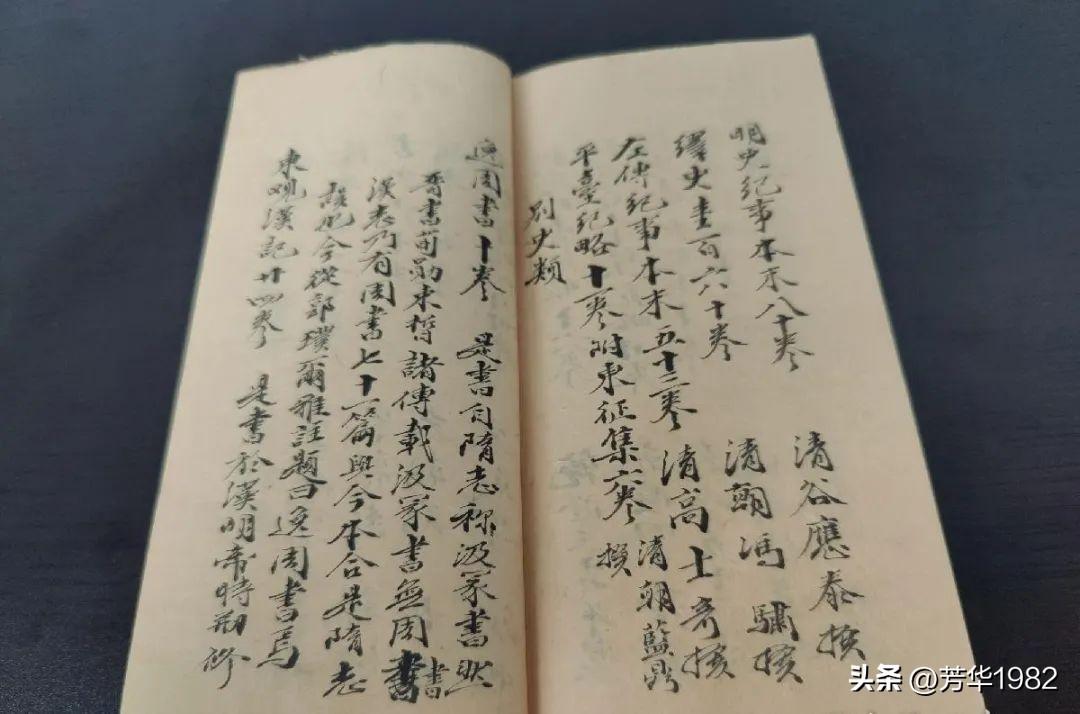 明史紀事本末八十卷 清谷應泰撰
繹史壹百六十卷 清朝馮 驌撰
左傳紀事本末五十三卷 清高士奇撰
平臺紀略十一卷附東征集六卷 清朝藍鼎
撰
別史類
逸周書十卷 是書自隋志称汲冢書然
晉書荀勗束晳諸傳載汲冢書無周書書
漢志乃有周書七十一篇與今本合是隋志
誤也今從郭璞爾雅註題曰逸周書焉
東觀漢記廿四卷 是書於漢明帝時初修
头条 @芳华1982